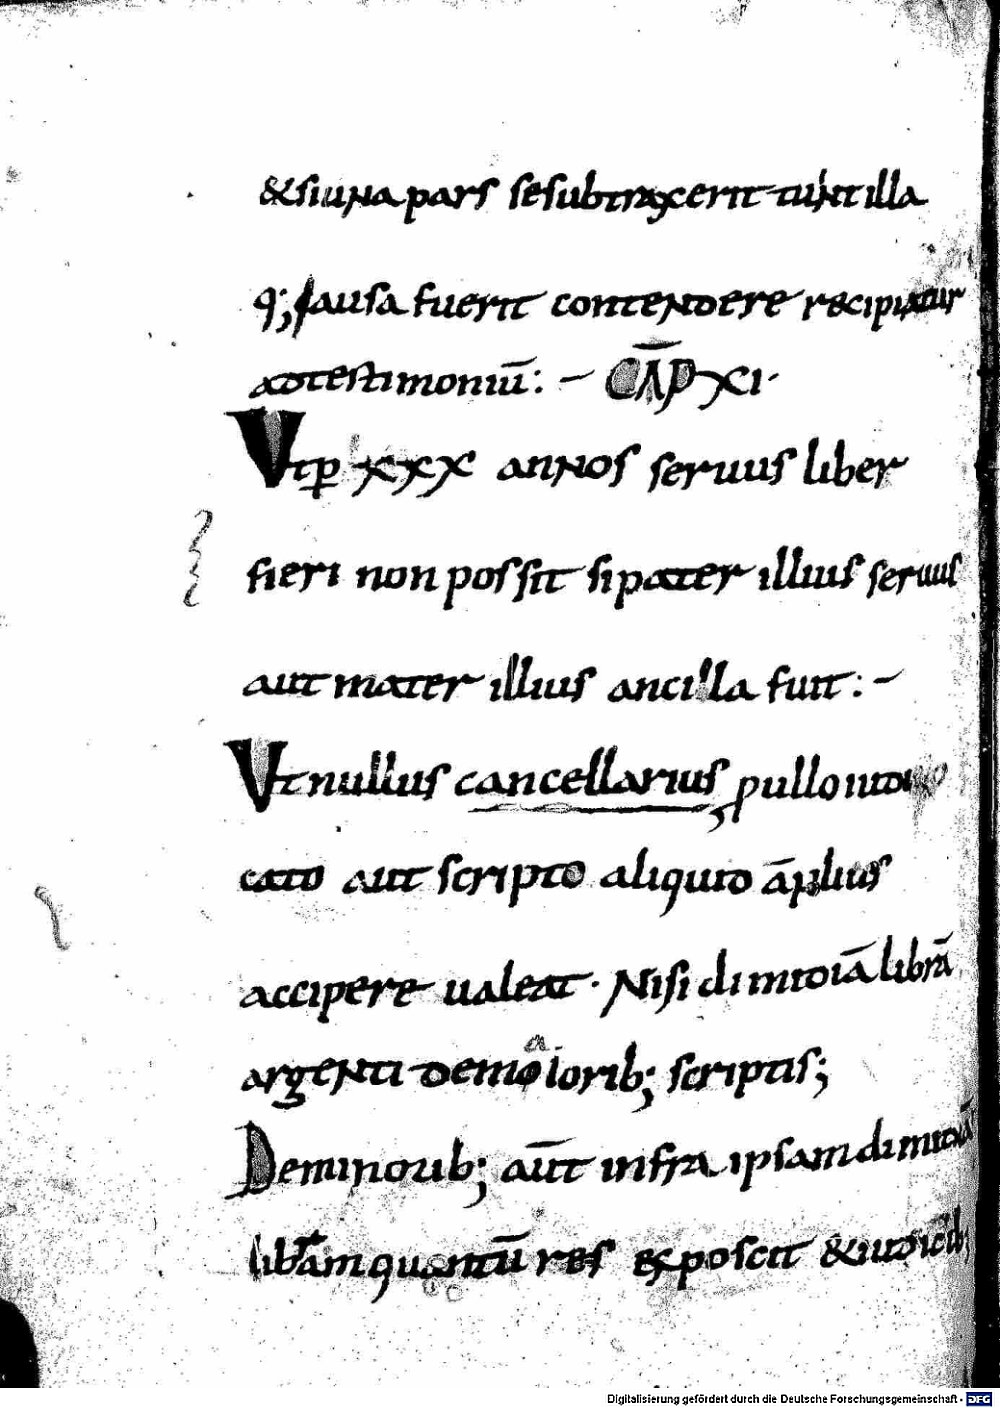 & si una pars se subtraxerit tunt illa
q; causa fuerit contendere recipiatur
ad testimoniū: – CĀP XI·
Vt ꝑ XXX annos seruus liber
fieri non possit si pater illius seruus
aut mater illius ancilla fuit: –
Vt nullus cancellarius pullo iudi
cato aut scripto aliquid āplius
accipere ualeat · Nisi dimidiā librā
argenti de maiorib; scriptis;
De minorib; aūt infra ipsam dimidiā
librām quantū res exposcit & iudicib;
Digitalisierung gefördert durch die Deutsche Forschungsgemeinschaft - DFG